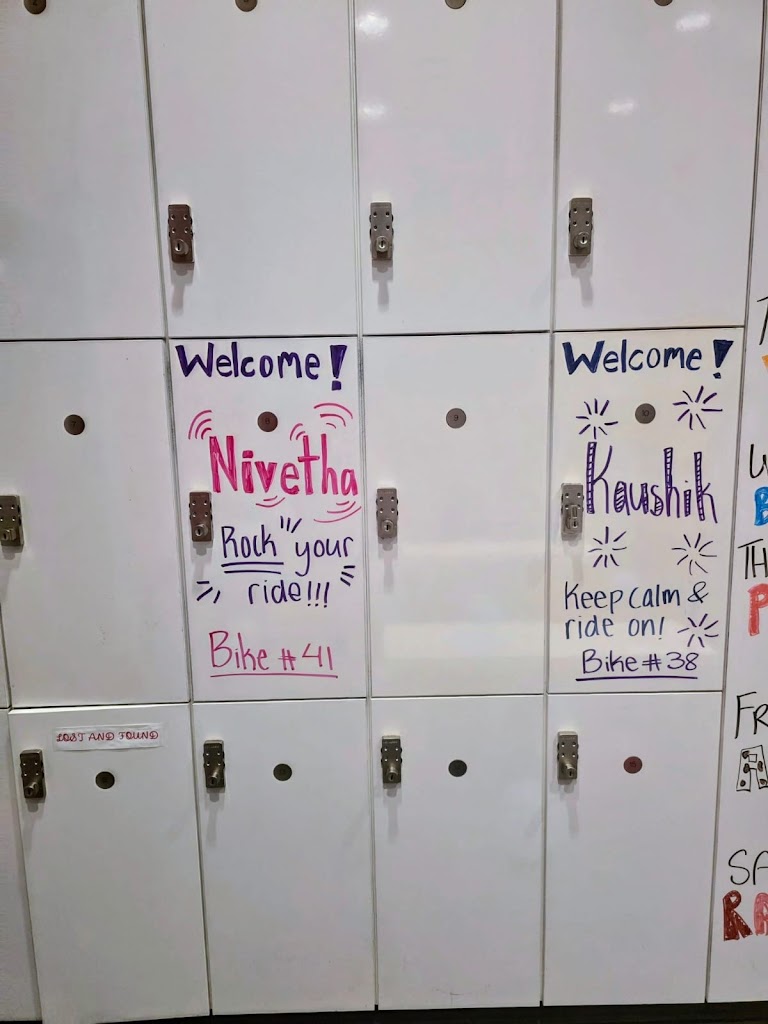 Welcome!
Nivetha
Rock your
ride!!!
Bike #41
Welcome!
Kaushik
Keep calm &
ride on!
Bike #38
LOST AND FOUND
7
8
9
10
TH
FR
SA
RA